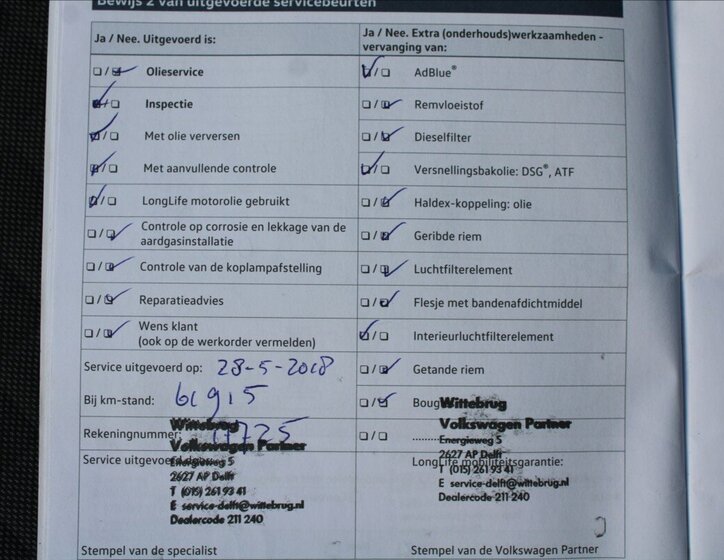 Bewijs 2 van uitgevoerde servicebeurten
Ja / Nee. Uitgevoerd is:
Olieservice
Inspectie
Met olie verversen
Met aanvullende controle
LongLife motorolie gebruikt
Controle op corrosie en lekkage van de
aardgasinstallatie
Controle van de koplampafstelling
Reparatieadvies
Wens klant
(ook op de werkorder vermelden)
Service uitgevoerd op: 28-5-2018
Bij km-stand: 61915
Rekeningnummer:
Service uitgevoerd
Wittebrug
Volkswagen Partner
Energieweg 5
2627 AP Delft
T (015) 261 93 41
E service-delft@wittebrug.nl
Dealercode 211 240
Stempel van de specialist
Ja / Nee. Extra (onderhouds)werkzaamheden -
vervanging van:
AdBlue®
Remvloeistof
Dieselfilter
Versnellingsbakolie: DSG®, ATF
Haldex-koppeling: olie
Geribde riem
Luchtfilterelement
Flesje met bandenafdichtmiddel
Interieurluchtfilterelement
Getande riem
Boug
Wittebrug
Volkswagen Partner
Energieweg 5
2627 AP Delft
LongLife mobiliteitsgarantie:
T (015) 261 93 41
E service-delft@wittebrug.nl
Dealercode 211 240
Stempel van de Volkswagen Partner